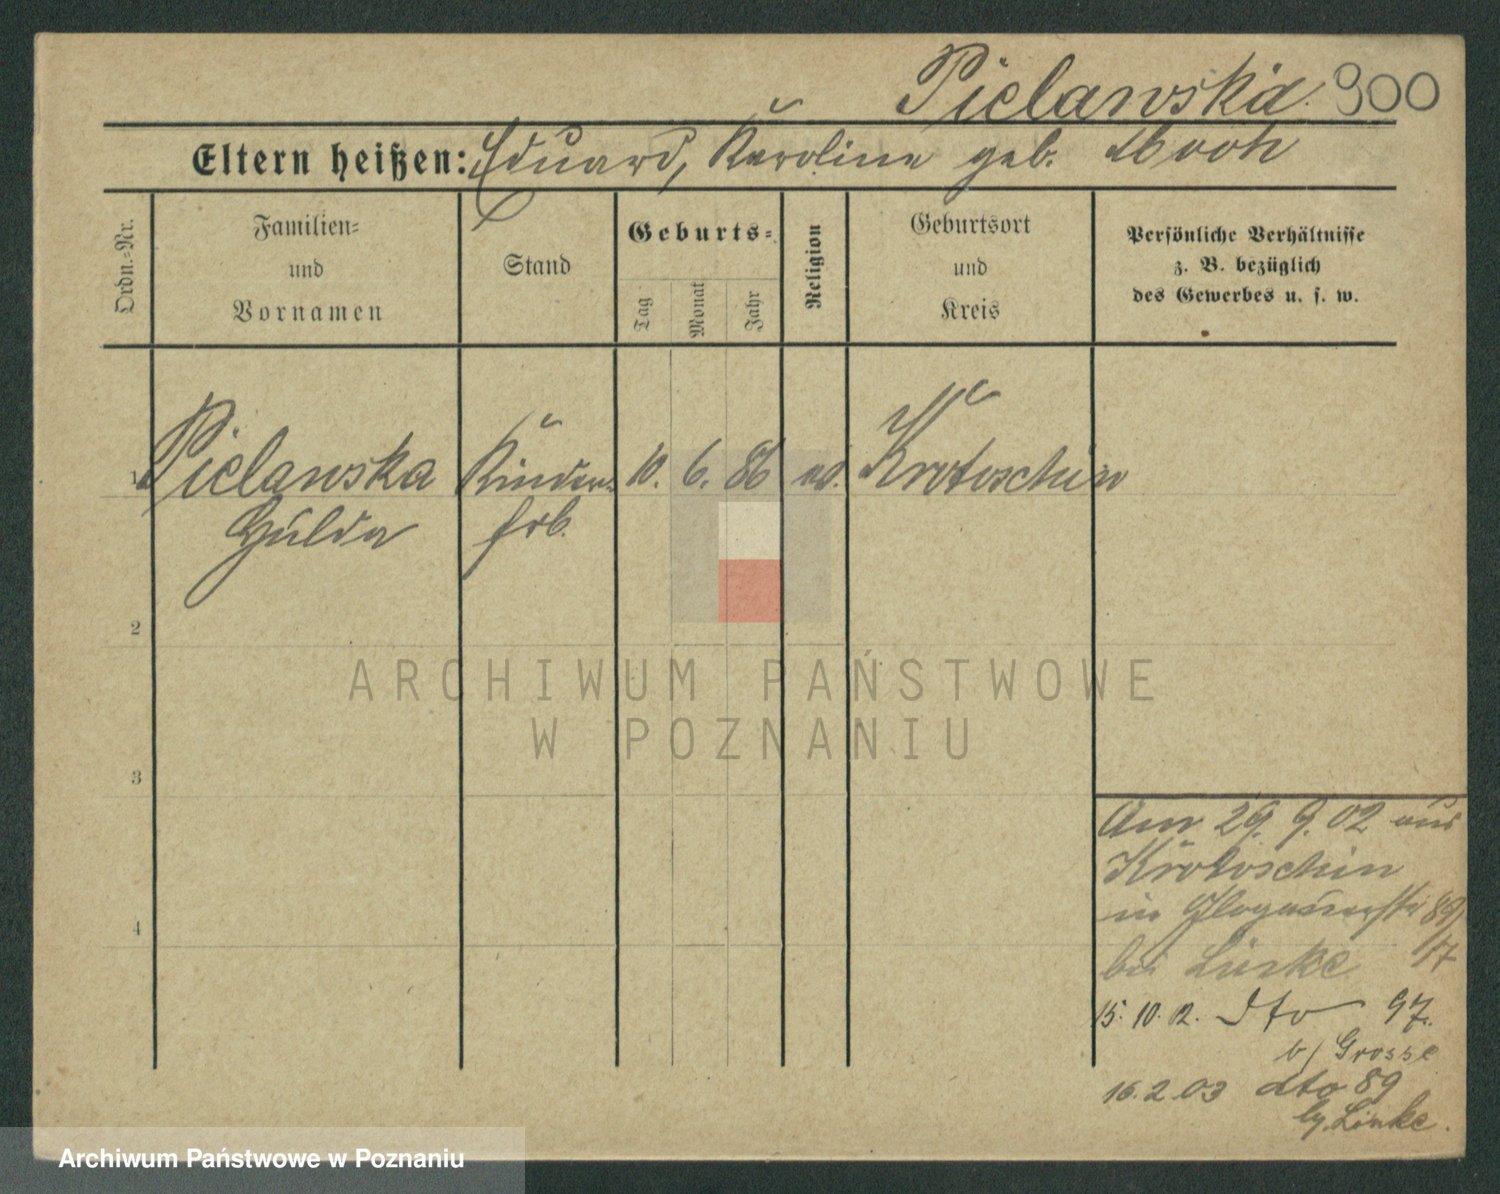 Pielawska. 900
Eltern heißen: Eduard, Karoline geb.
Ordn.-Nr.
Familien- und Vornamen
Stand
Geburts-
Tag
Monat
Jahr
Religion
Geburtsort und Kreis
Persönliche Verhältnisse
z. B. bezüglich
des Gewerbes u. s. w.
1 Pielawska Kinder- 10. 6. 86 Krotoschin
Hulda frl.
2
3
4
Am 29. 9. 02 aus
Krotoschin
in Glogauerstr 89/
bei Linke 17
15. 10. 02. dto 97.
b/ Grosse
16. 2. 03 dto 89
Linke.
ARCHIWUM PAŃSTWOWE
W POZNANIU
Archiwum Państwowe w Poznaniu